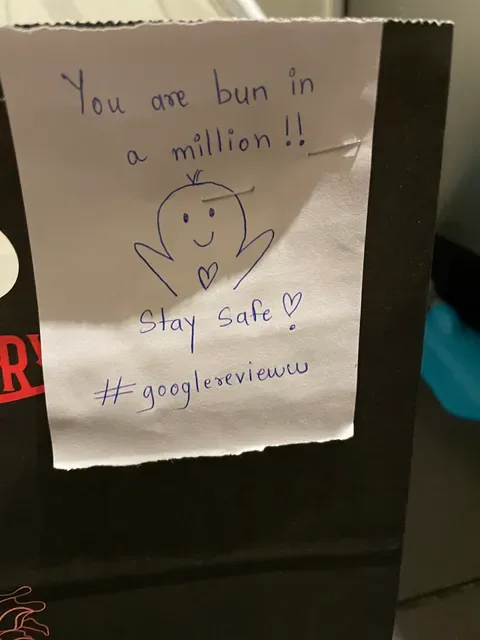 You are bun in
a million!!
Stay Safe♡
#googlerevieww